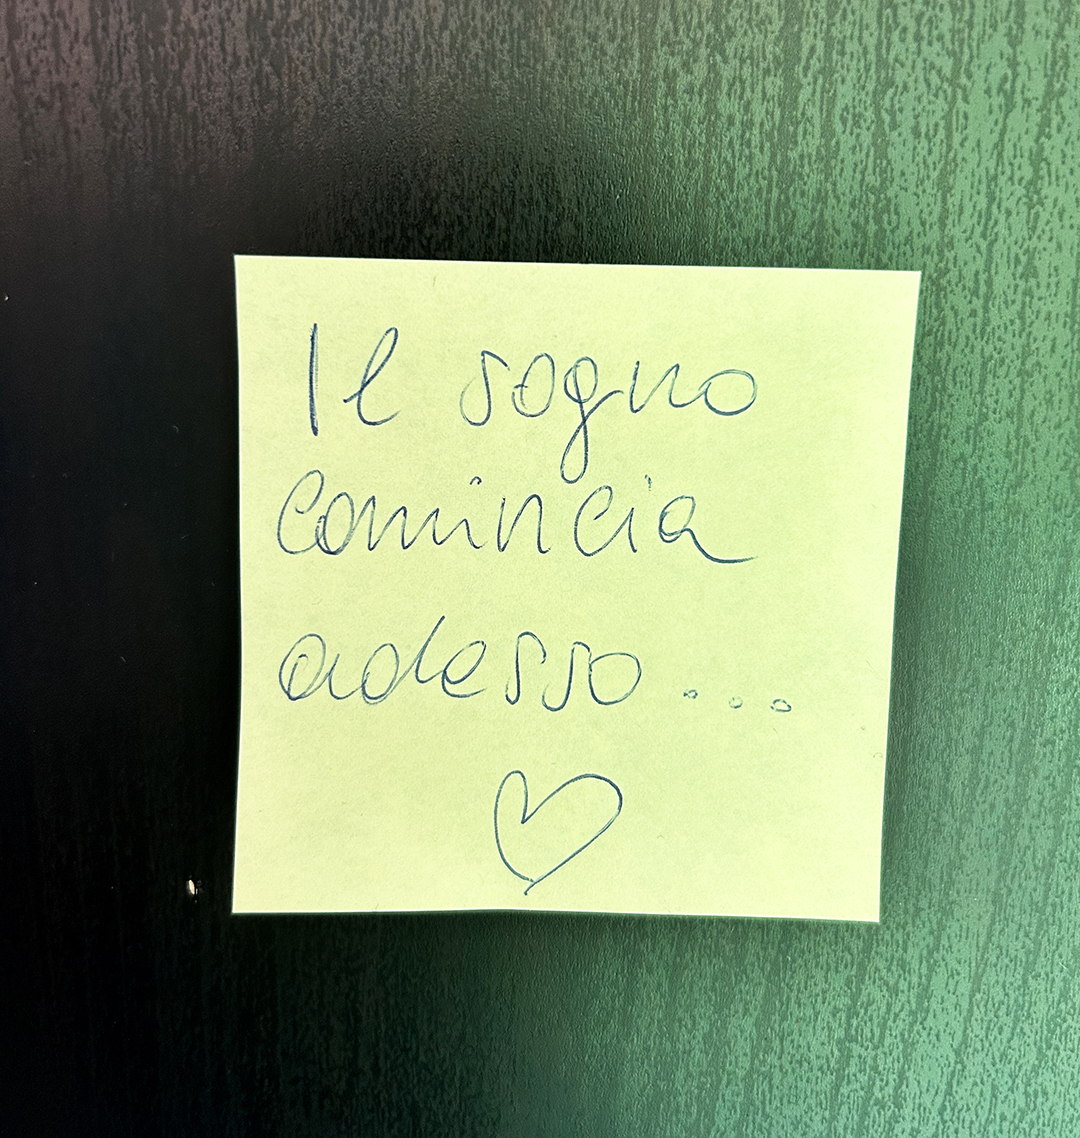 Il sogno
comincia
adesso...